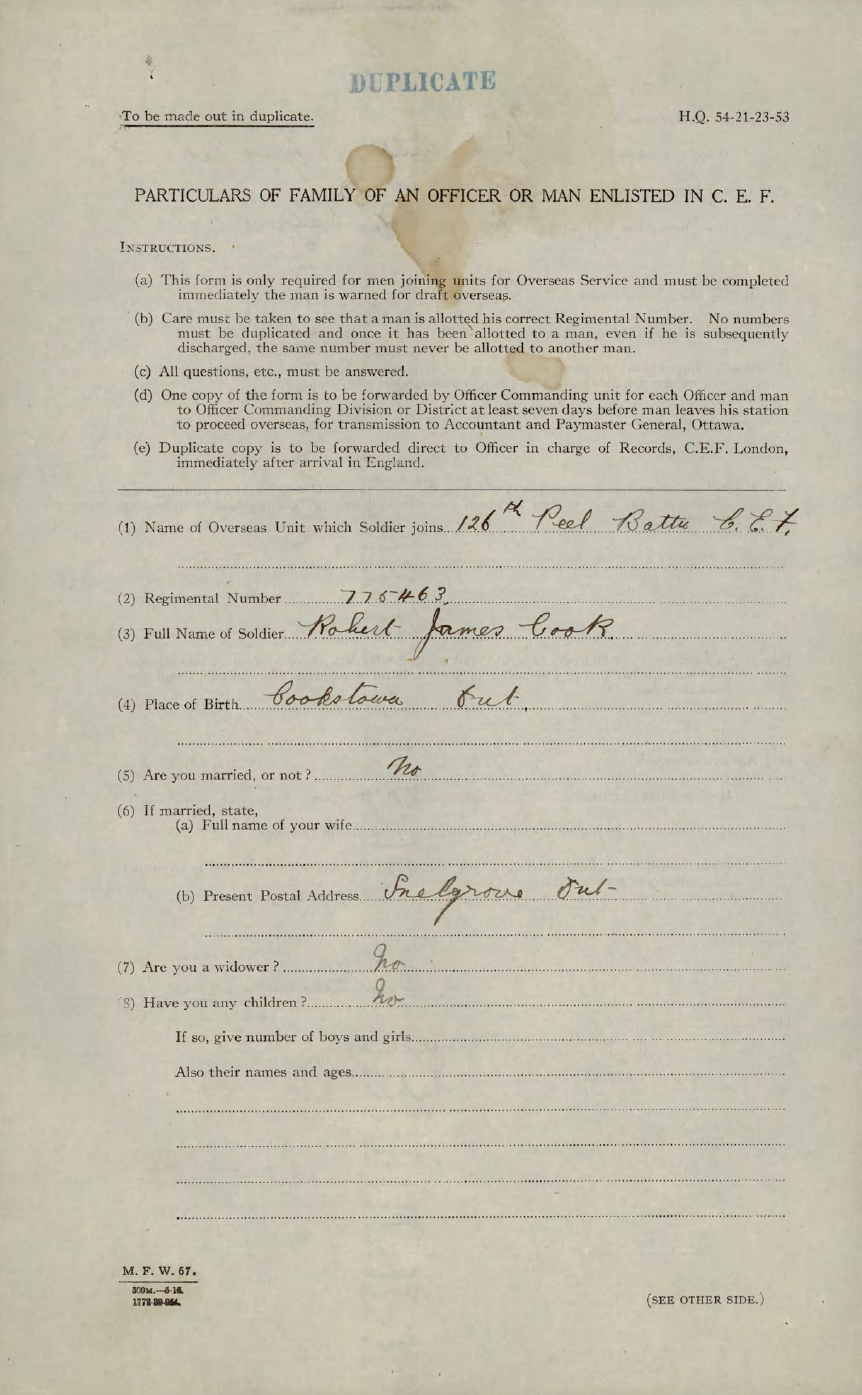 DUPLICATE
To be made out in duplicate. H.Q. 54-21-23-53
PARTICULARS OF FAMILY OF AN OFFICER OR MAN ENLISTED IN C. E. F.
INSTRUCTIONS.
(a) This form is only required for men joining units for Overseas Service and must be completed
immediately the man is warned for draft overseas.
(b) Care must be taken to see that a man is allotted his correct Regimental Number. No numbers
must be duplicated and once it has been allotted to a man, even if he is subsequently
discharged, the same number must never be allotted to another man.
(c) All questions, etc., must be answered.
(d) One copy of the form is to be forwarded by Officer Commanding unit for each Officer and man
to Officer Commanding Division or District at least seven days before man leaves his station
to proceed overseas, for transmission to Accountant and Paymaster General, Ottawa.
(e) Duplicate copy is to be forwarded direct to Officer in charge of Records, C.E.F. London,
immediately after arrival in England.
(1) Name of Overseas Unit which Soldier joins 126th Peel Battn C.E.F.
(2) Regimental Number 775463
(3) Full Name of Soldier Robert James Cook
(4) Place of Birth Cookstown Ont.
(5) Are you married, or not ? No
(6) If married, state,
(a) Full name of your wife
(b) Present Postal Address Snelgrove Ont
(7) Are you a widower ? No
(8) Have you any children ? No
If so, give number of boys and girls
Also their names and ages
M. F. W. 67.
300M.—6-16.
(SEE OTHER SIDE.)